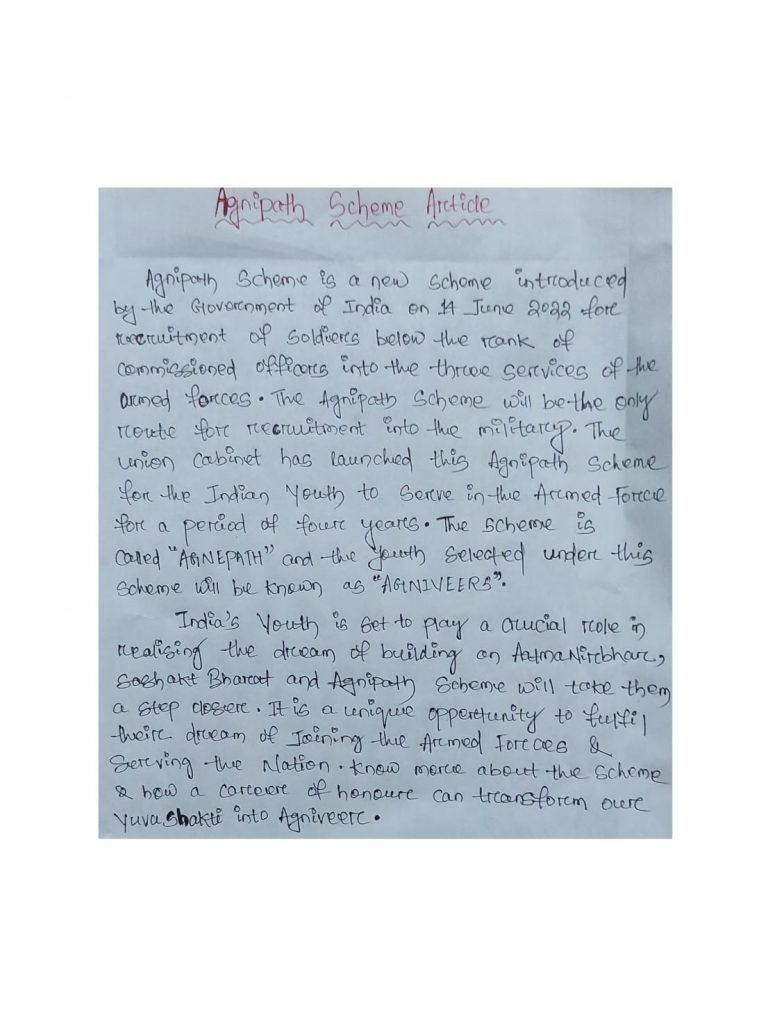 Agnipath Scheme Article
Agnipath Scheme is a new scheme introduced
by the Government of India on 14 June 2022 for
recruitment of soldiers below the rank of
commissioned officers into the three services of the
armed forces. The Agnipath Scheme will be the only
route for recruitment into the military. The
union cabinet has launched this Agnipath Scheme
for the Indian Youth to serve in the Armed Force
for a period of four years. The scheme is
called "AGNEPATH" and the youth selected under this
scheme will be known as "AGNIVEERS".
India's Youth is set to play a crucial role in
realising the dream of building an AatmaNirbhar,
Sashakt Bharat and Agnipath Scheme will take them
a step closer. It is a unique opportunity to fulfil
their dream of Joining the Armed Forces &
Serving the Nation. Know more about the scheme
& how a career of honour can transform our
Yuva Shakti into Agniveer.